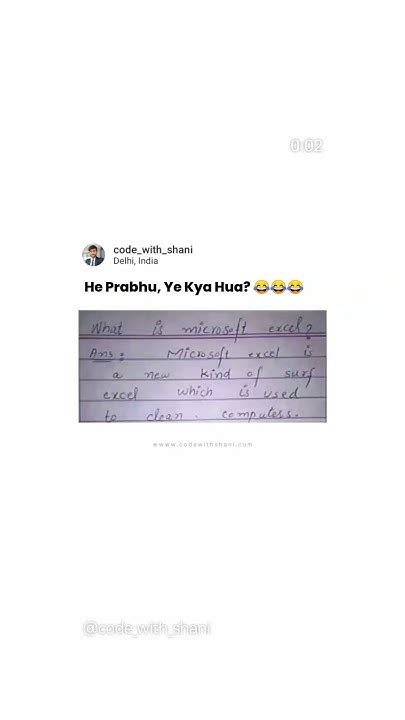 0:02
code_with_shani
Delhi, India
He Prabhu, Ye Kya Hua? 😂😂😂
What is microsoft excel?
Ans: Microsoft excel is
a new kind of surf
excel which is used
to clean. computers.
www.codewithshani.com
@code_with_shani